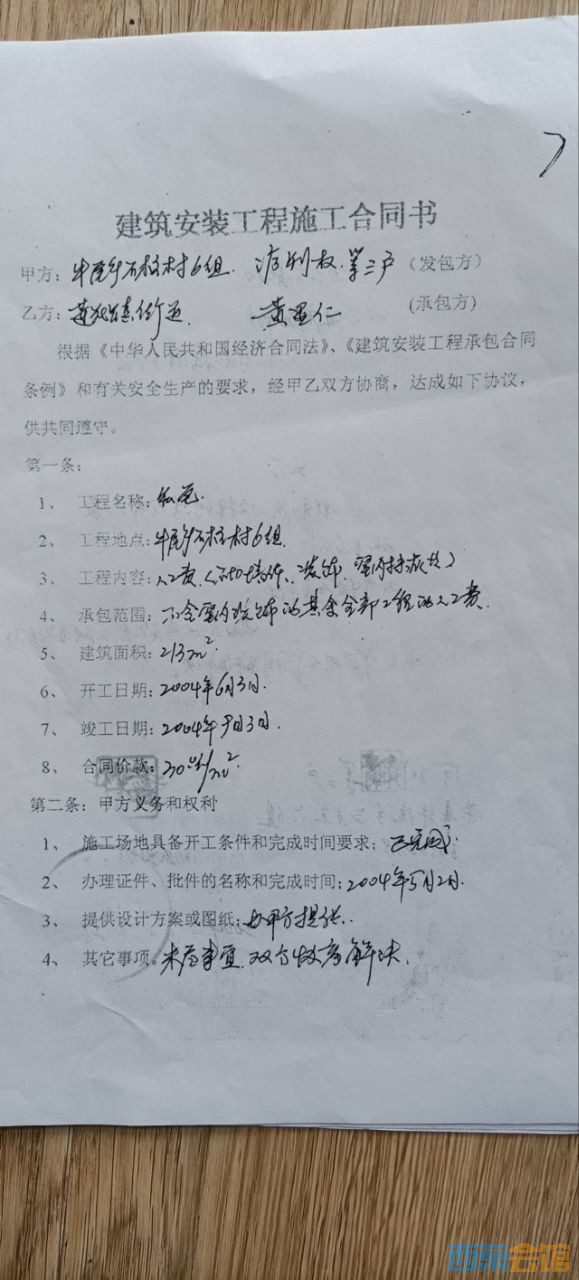 建筑安装工程施工合同书
甲方：牛尾乡石柱村6组 第三户（发包方）
乙方： 黄 仁 （承包方）
根据《中华人民共和国经济合同法》、《建筑安装工程承包合同
条例》和有关安全生产的要求，经甲乙双方协商，达成如下协议，
供共同遵守。
第一条：
1、 工程名称：私宅.
2、 工程地点：牛尾乡石柱村6组.
3、 工程内容：人工费
4、 承包范围：不含室内装饰的其余全部工程的人工费.
5、 建筑面积：213m².
6、 开工日期：2004年6月3日.
7、 竣工日期：2004年9月3日.
8、 合同价款： /m²
第二条：甲方义务和权利
1、 施工场地具备开工条件和完成时间要求：已完成.
2、 办理证件、批件的名称和完成时间：2004年5月2日.
3、 提供设计方案或图纸：由甲方提供.
4、 其它事项。未尽事宜.双方 解决.
西祠会馆